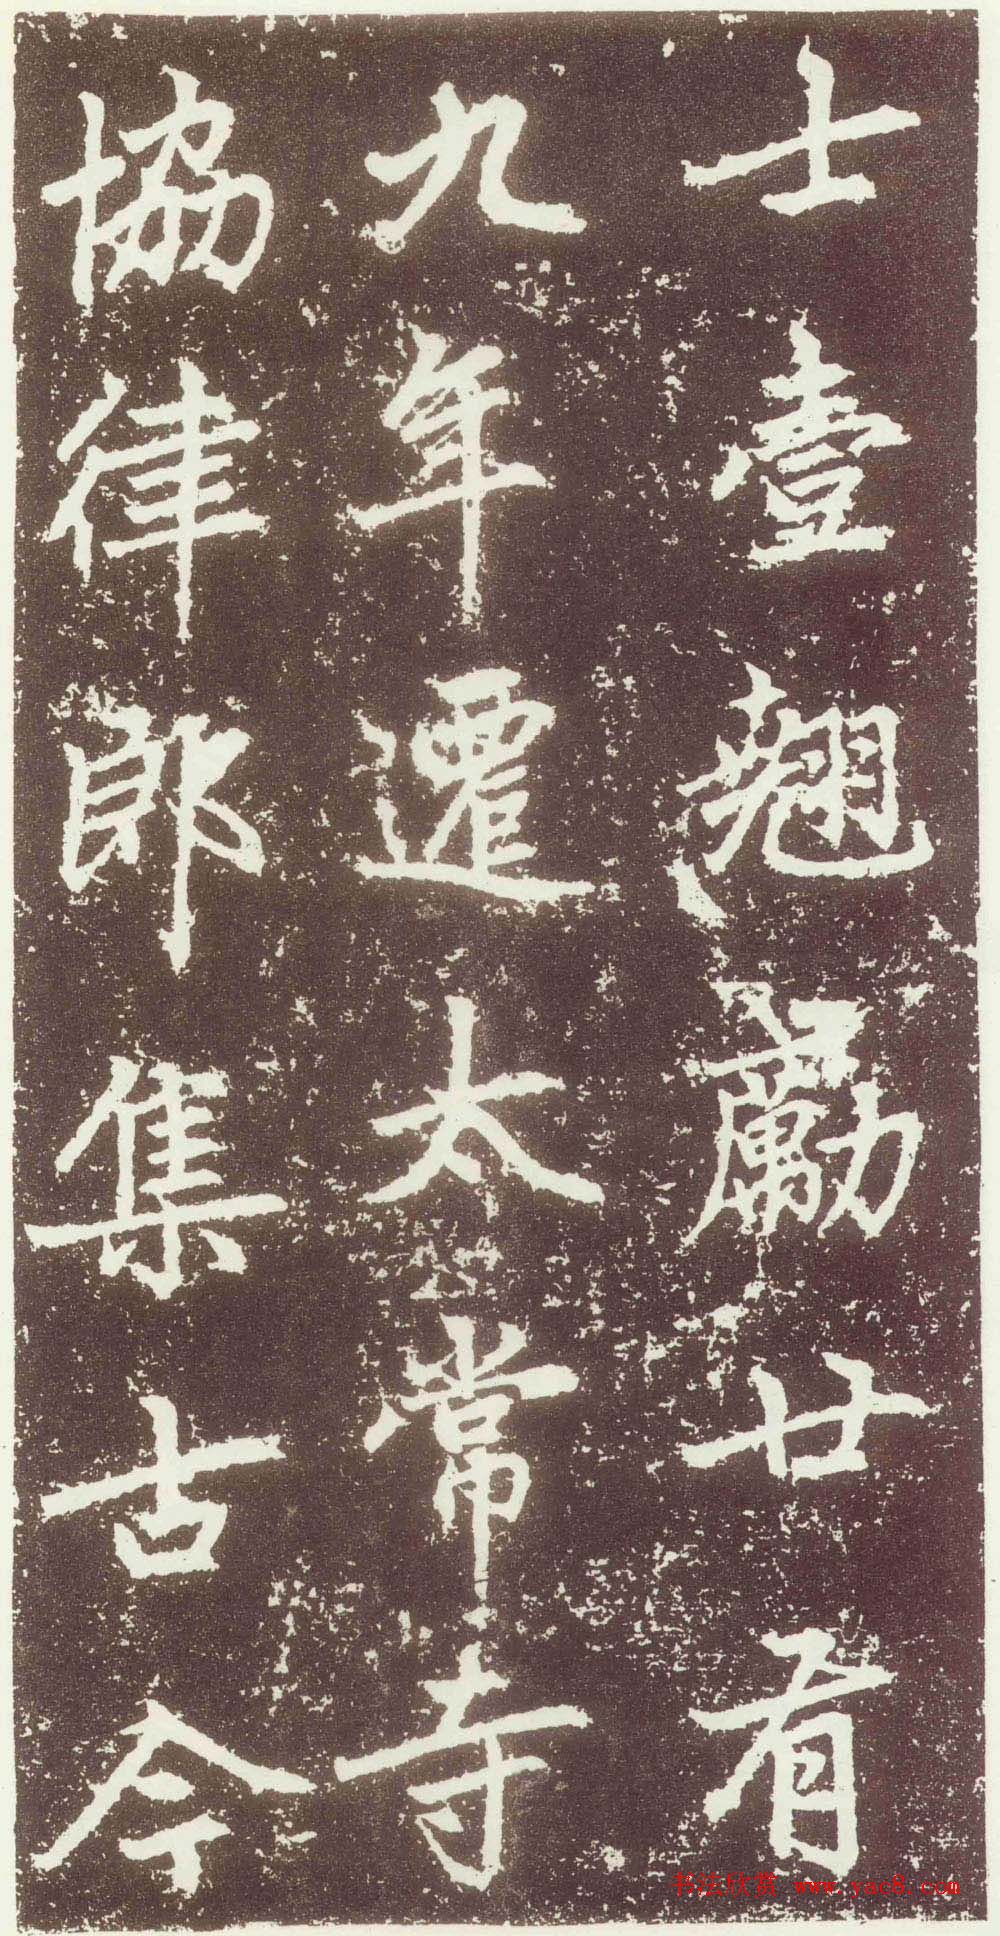 士壹翘勵廿有
九年遷太常寺
協律郎集古今
书法欣赏 www.yac8.com